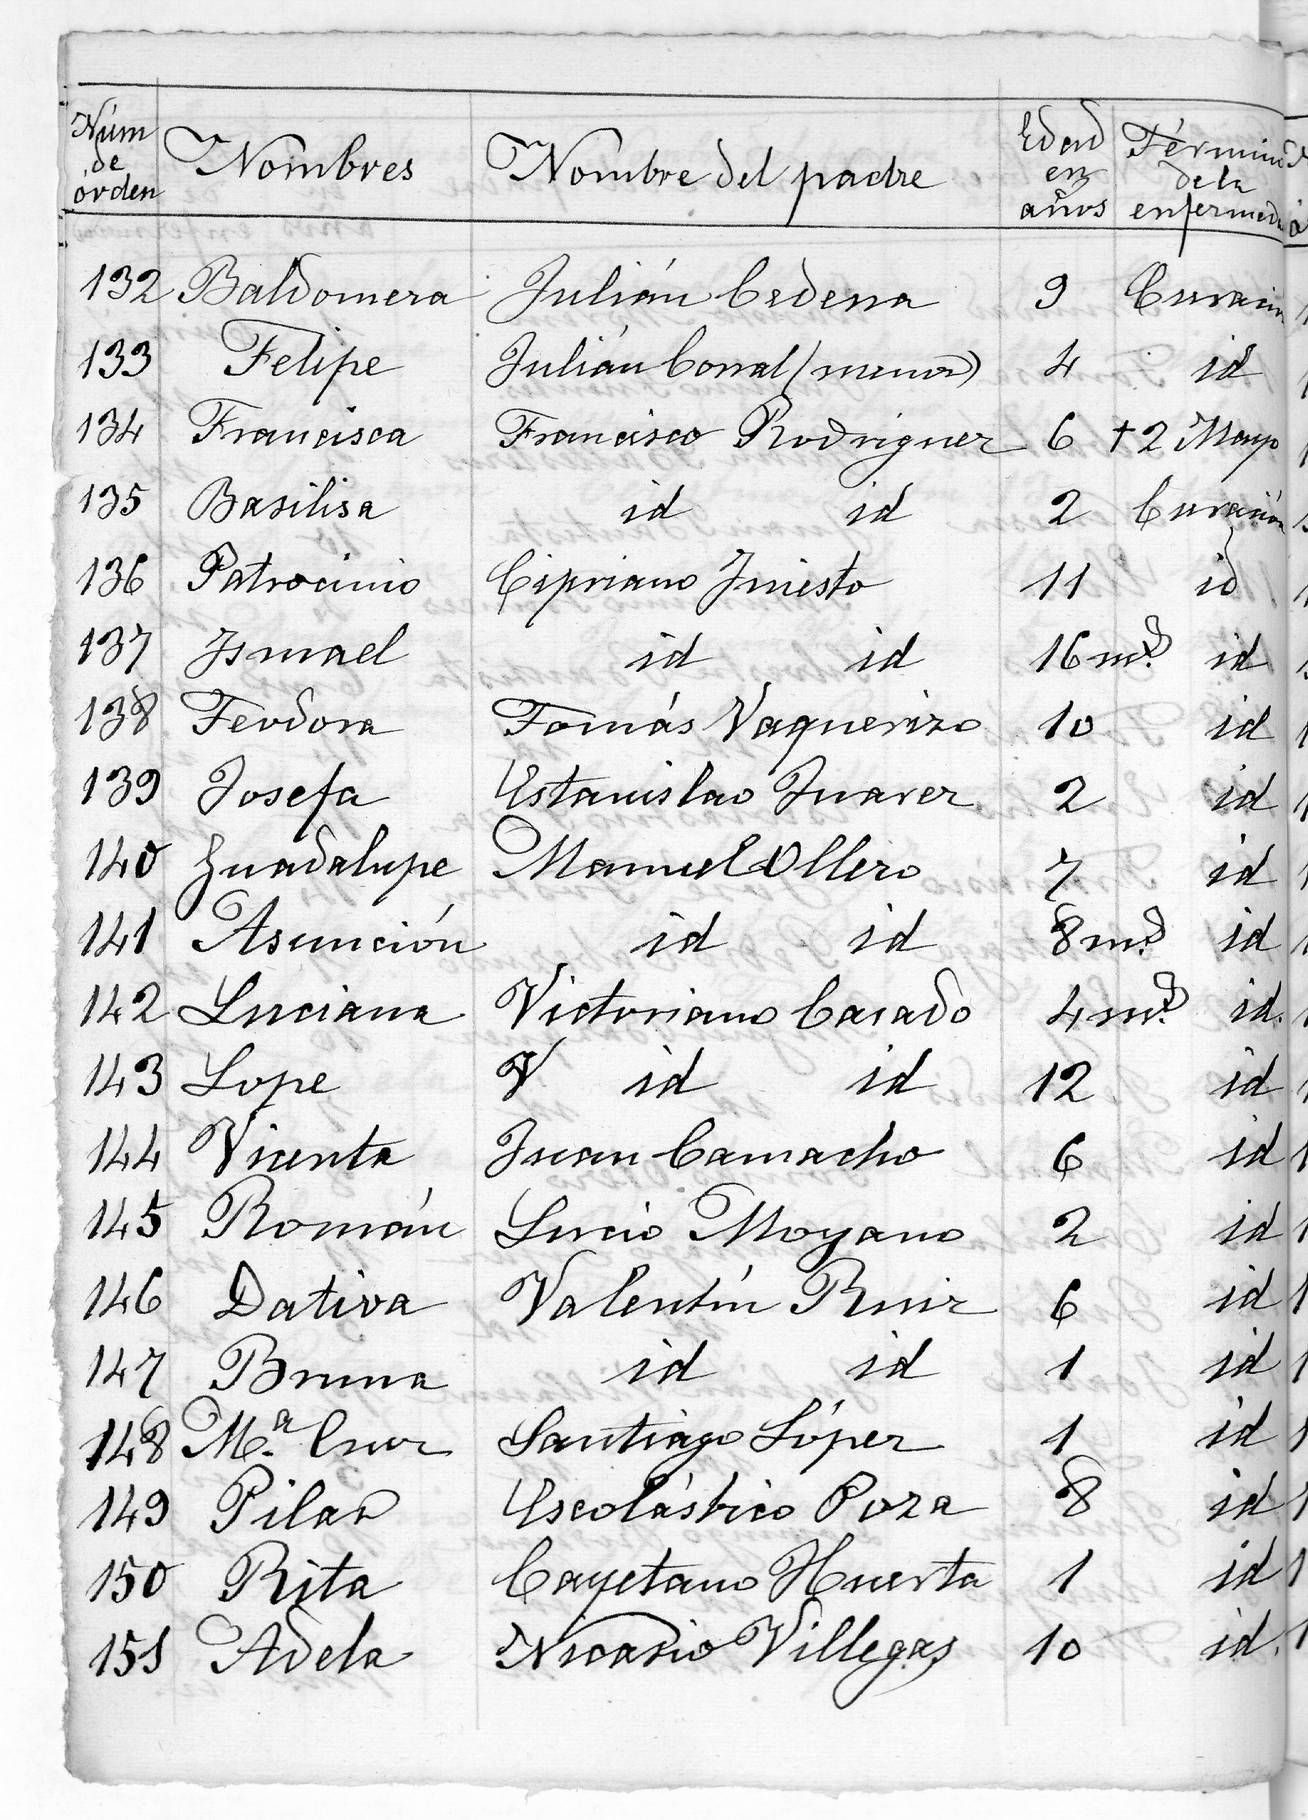 Núm de órden Nombres Nombre del padre Edad en años Términ de la enfermed
132 Baldomera Julián Cedena 9 Curación
133 Felipe Julián Corral (menor) 4 id
134 Francisca Francisco Rodriguez 6 †2 Mayo
135 Basilisa id id 2 Curación
136 Patrocinio Cipriano Iniesto 11 id
137 Ismael id id 16 ms. id
138 Teodora Tomás Vaquerizo 10 id
139 Josefa Estanislao Juarez 2 id
140 Guadalupe Manuel Ollero 7 id
141 Asunción id id 8 ms. id
142 Luciana Victoriano Casado 4 ms. id.
143 Lope V id id 12 id
144 Vicenta Juan Camacho 6 id
145 Román Lucio Moyano 2 id
146 Dativa Valentín Ruiz 6 id
147 Bruna id id 1 id
148 M.ª Cruz Santiago López 1 id
149 Pilar Escolástico Poza 8 id
150 Rita Cayetano Huerta 1 id
151 Adela Nicasio Villegas 10 id.